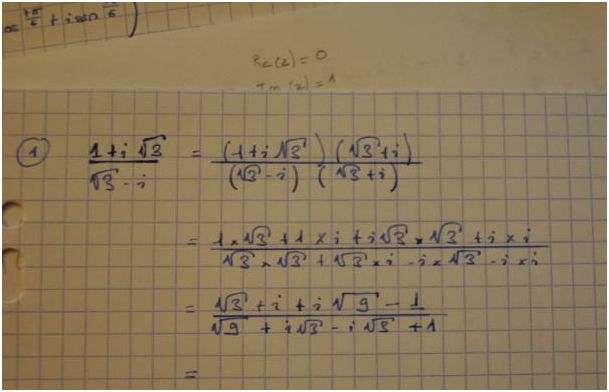 Re(z) = 0
Im(z) = 1
① (1 + i √3) / (√3 - i) = ((1 + i √3) (√3 + i)) / ((√3 - i) (√3 + i))
= (1 × √3 + 1 × i + i √3 × √3 + i × i) / (√3 × √3 + √3 × i - i × √3 - i × i)
= (√3 + i + i √9 - 1) / (√9 + i √3 - i √3 + 1)
=